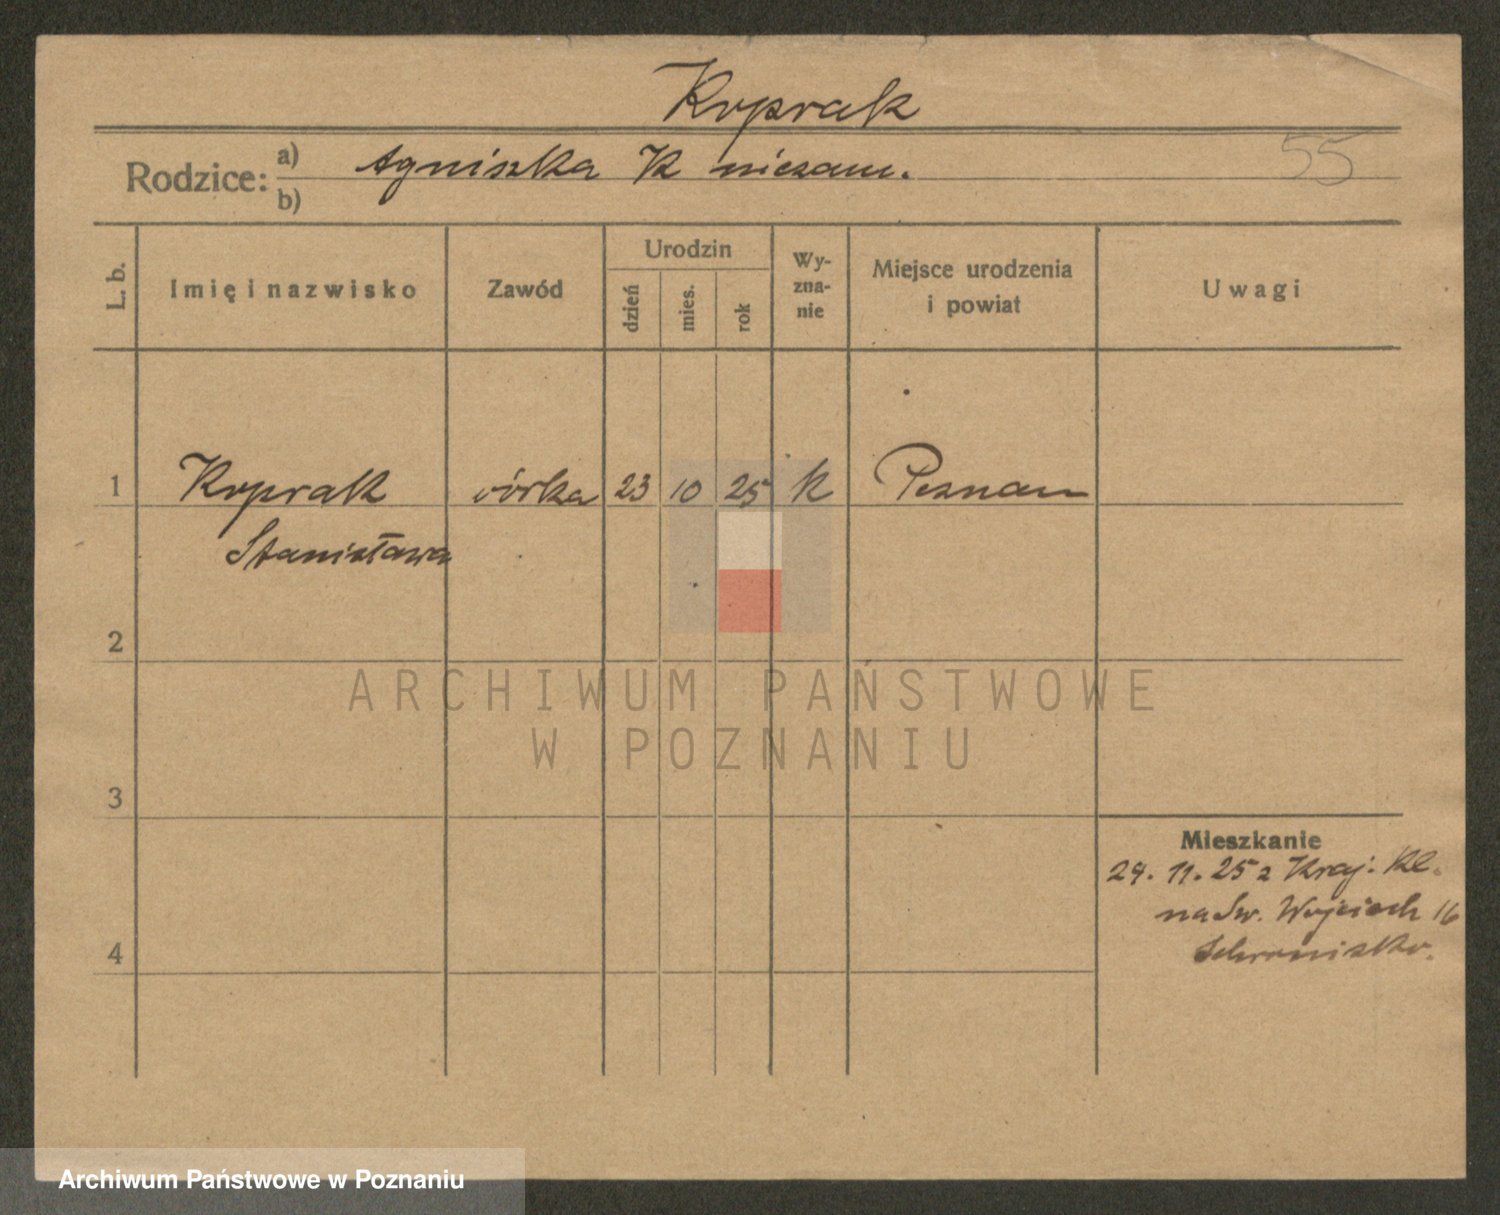 Koprak
Rodzice: a) Agniszka K niezam.
b)
55
L. b. Imię i nazwisko Zawód Urodzin dzień mies. rok Wy-zna-nie Miejsce urodzenia i powiat Uwagi
1 Koprak córka 23 10 25 k Poznan
Stanisława
2
ARCHIWUM PAŃSTWOWE
W POZNANIU
3
Mieszkanie
29. 11. 25 z Kraj. Kl.
na Św. Wojciech 16
4 Schronisko.
Archiwum Państwowe w Poznaniu